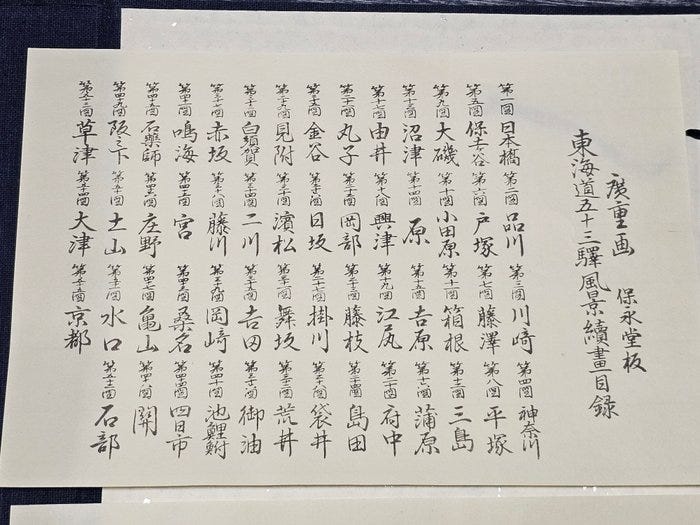 廣重画 保永堂板
東海道五十三驛風景續畫目録
第一図 日本橋 第二図 品川 第三図 川崎 第四図 神奈川
第五図 保土谷 第六図 戸塚 第七図 藤澤 第八図 平塚
第九図 大磯 第十図 小田原 第十一図 箱根 第十二図 三島
第十三図 沼津 第十四図 原 第十五図 吉原 第十六図 蒲原
第十七図 由井 第十八図 興津 第十九図 江尻 第二十図 府中
第二十一図 丸子 第二十二図 岡部 第二十三図 藤枝 第二十四図 島田
第二十五図 金谷 第二十六図 日坂 第二十七図 掛川 第二十八図 袋井
第二十九図 見附 第三十図 濱松 第三十一図 舞坂 第三十二図 荒井
第三十三図 白須賀 第三十四図 二川 第三十五図 吉田 第三十六図 御油
第三十七図 赤坂 第三十八図 藤川 第三十九図 岡崎 第四十図 池鯉鮒
第四十一図 鳴海 第四十二図 宮 第四十三図 桑名 第四十四図 四日市
第四十五図 石藥師 第四十六図 庄野 第四十七図 亀山 第四十八図 関
第四十九図 阪之下 第五十図 土山 第五十一図 水口 第五十二図 石部
第五十三図 草津 第五十四図 大津 第五十五図 京都